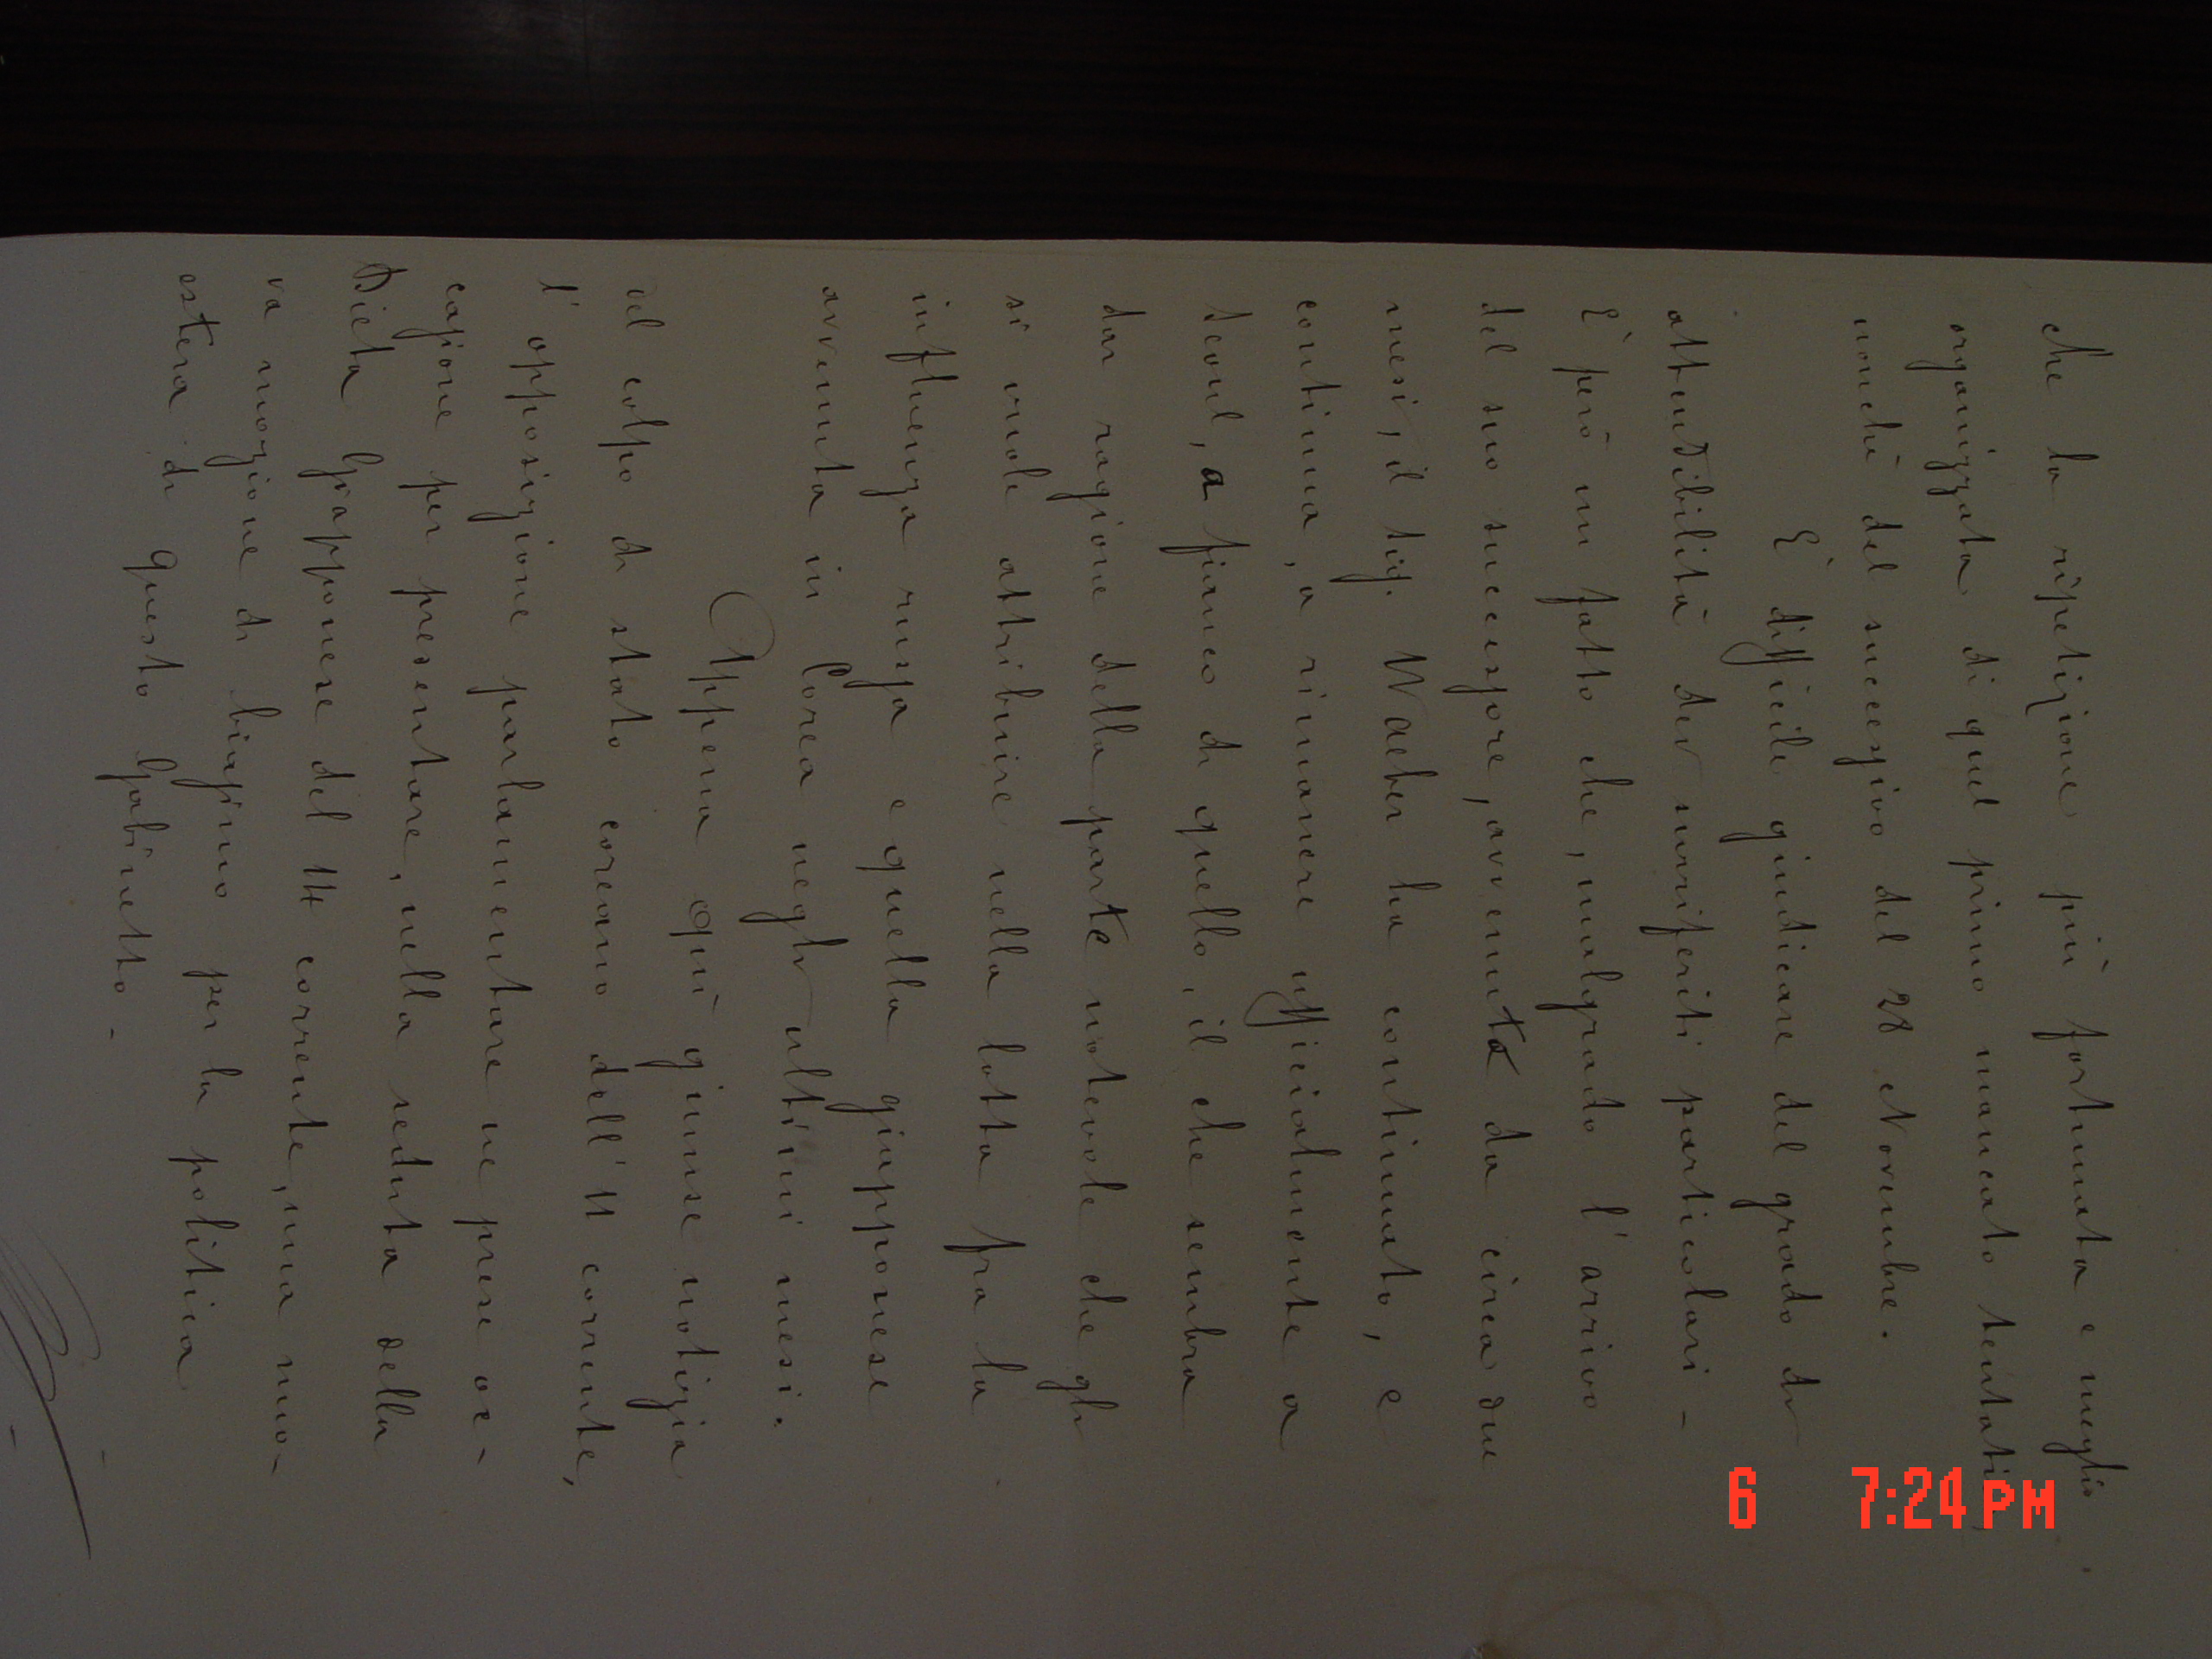 che la ripetizione più fortunata e meglio
organizzata di quel primo mancato tentati
nonchè del successivo del 28 Novembre.
È difficile giudicare del grado di
attendibilità dei surriferiti particolari -
È però un fatto che, malgrado l'arrivo
del suo successore, avvenuto da circa due
mesi, il Sig. Waeber ha continuato, e
continua, a rimanere ufficialmente a
Seoul, a fianco di quello, il che sembra
dar ragione della parte notevole che gli
si vuole attribuire nella lotta fra la
influenza russa e quella giapponese
avvenuta in Corea negli ultimi mesi.
Appena qui giunse notizia
del colpo di stato coreano dell'11 corrente,
l'opposizione parlamentare ne prese oc-
casione per presentare, nella seduta della
Dieta Giapponese del 14 corrente, una nuo-
va mozione di biasimo per la politica
estera di questo Gabinetto -
6 7:24 PM